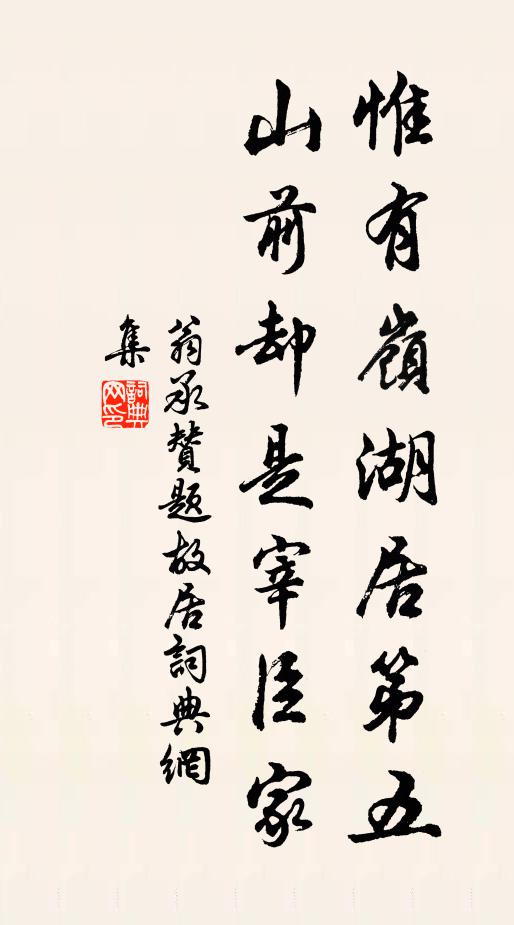 惟有嶺湖居第五
山前却是宰臣家
翁承贊題故居詞典網
集
詞典網印